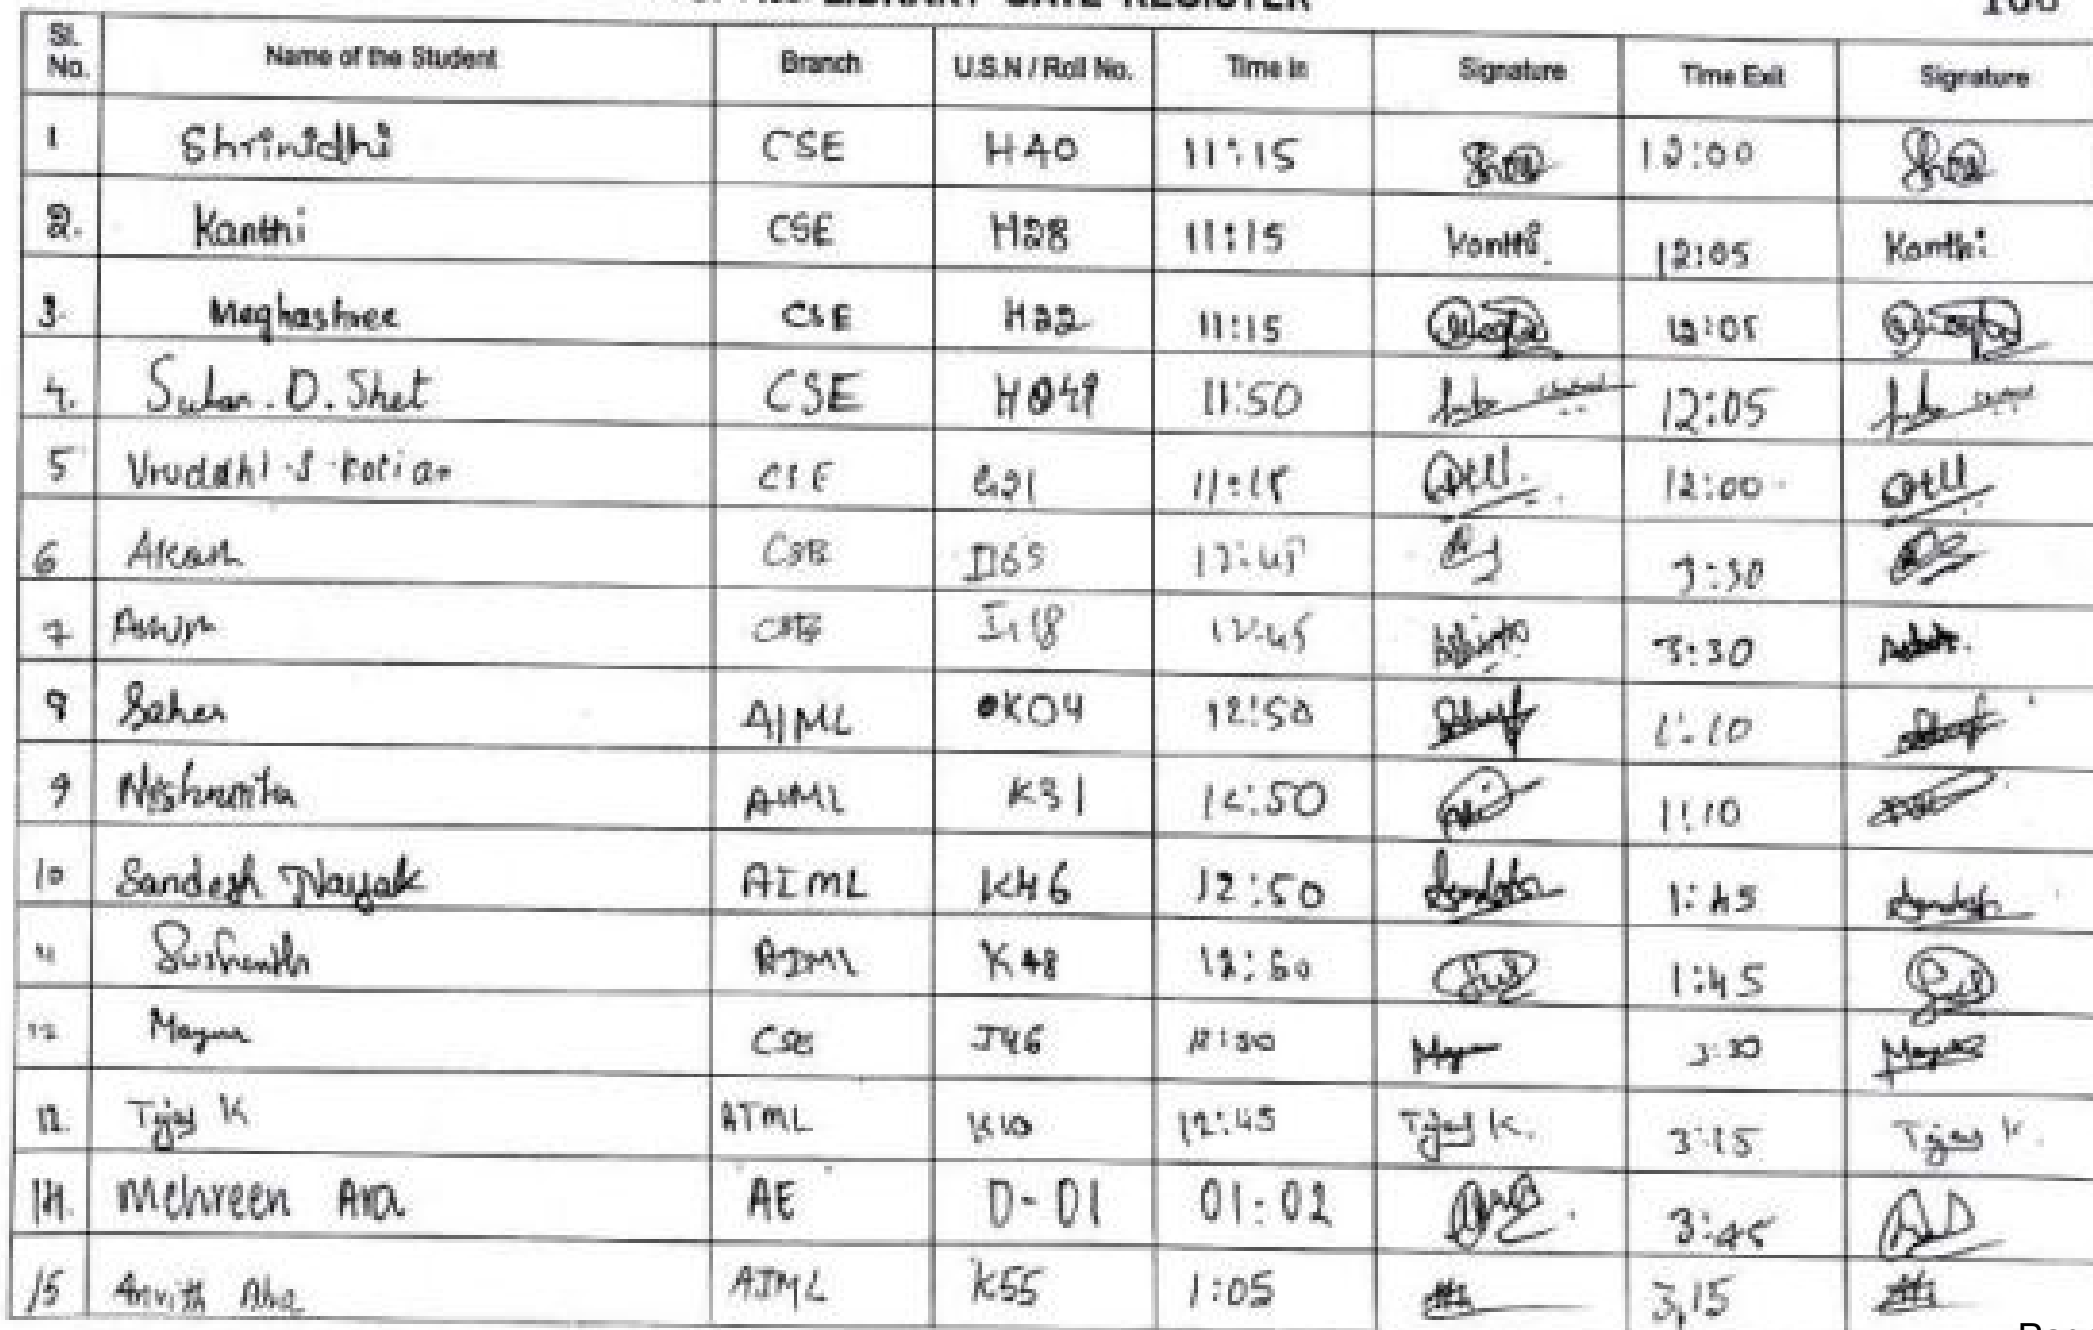 LIBRARY GATE REGISTER
Sl. No. Name of the Student Branch U.S.N / Roll No. Time in Signature Time Exit Signature
1 Shrinidhi CSE H40 11:15 12:00
2. Kanthi CSE H28 11:15 Kanthi. 12:05 Kanthi
3. Meghashree CSE H22 11:15 12:05
4. D. Shet CSE 11:50 12:05
5 Vruddhi S Kotian CSE G21 11:15 12:00
6 Akash CSE D65 12:45 3:30
7 CSE 12:45 3:30
8 Saher AIML K04 12:50 1:10
9 Nishmitha AIML K31 12:50 1:10
10 Sandesh Nayak AIML K46 12:50 Sandesh 1:45 Sandesh
11 AIML K48 12:50 1:45
12 Mayur CSE J46 3:30
Tejas K AIML K10 12:45 Tejas K. 3:15 Tejas K.
14. Mehreen Ara AE D-01 01:02 3:45
15 Anvith AIML K55 1:05 3,15